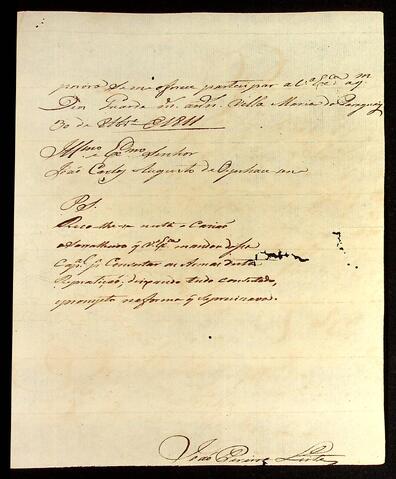 se me oferece participar a V.ª Ex.ª a q.m
Deos Guarde m.s ann.s Villa Maria do Paraguay
30 de 8br.º de 1811
Ill.mo e Ex.mo Senhor
João Carlos Augusto de Oeynhausen
P.S.
Recolhe-se nesta
o Serralheiro q V.ª Ex.ª mandou desse
Cap.al p.ª Consertar as Armas desta
Repartição, deixando tudo consertado,
e prompto na forma q
João Pereira Leite